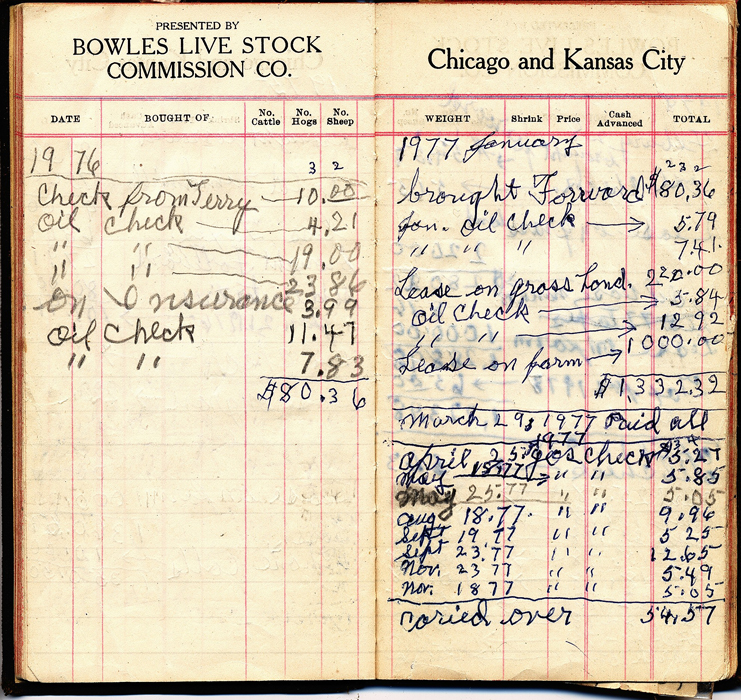 PRESENTED BY
BOWLES LIVE STOCK
COMMISSION CO.
DATE BOUGHT OF No. Cattle No. Hogs No. Sheep
1976
3 2
Check from Terry 10.00
oil check 4.21
" " 19.00
" " 23.86
on Insurance 3.99
oil check 11.47
" " 7.83
$80.36
Chicago and Kansas City
WEIGHT Shrink Price Cash Advanced TOTAL
1977 January
2 3 2
brought Forward $80,36
Jan. oil check 5.79
" " " 7.41.
Lease on grass Land. 220.00
oil check 5.84
" " 12.92
Lease on farm 1000.00
$1,332.32
March 29, 1977 Paid all
1977
April 25, gas check 5.27
May 15.77 " " 5.85
May 25.77 " " 5.05
aug 18.77. " " 9.96
Sept 19.77 " " 5 25
Sept 23.77 " " 12.65
Nov. 23 77 " " 5.49
Nov. 18 77 " " 5.05
Caried over 54.57